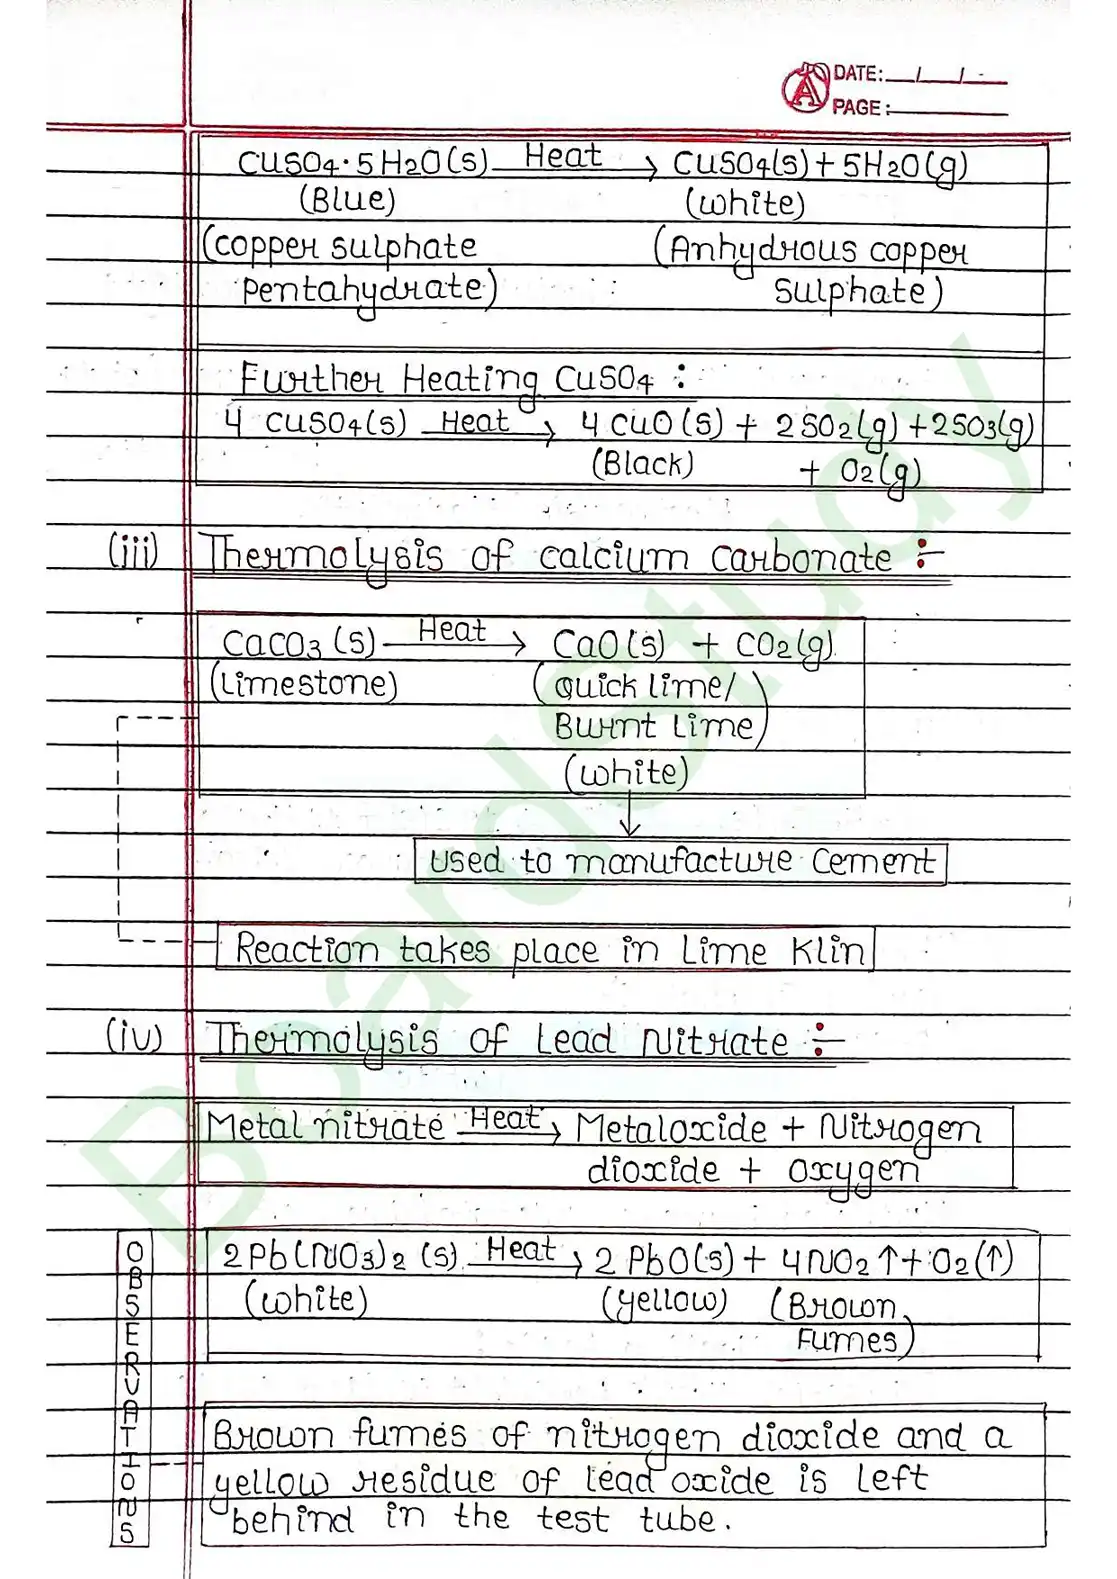 DATE: __/__/__
PAGE:
CuSO4·5H2O(s) Heat → CuSO4(s) + 5H2O(g)
(Blue) (White)
(copper sulphate (Anhydrous copper
pentahydrate) sulphate)
Further Heating CuSO4 :
4 CuSO4(s) Heat → 4 CuO(s) + 2SO2(g) + 2SO3(g)
(Black) + O2(g)
(iii) Thermolysis of calcium carbonate :-
CaCO3(s) Heat → CaO(s) + CO2(g)
(Limestone) (Quick lime/
Burnt Lime)
(White)
Used to manufacture Cement
Reaction takes place in Lime Klin
(iv) Thermolysis of Lead Nitrate :-
Metal nitrate Heat → Metaloxide + Nitrogen
dioxide + oxygen
2Pb(NO3)2 (s) Heat → 2 PbO(s) + 4NO2 ↑ + O2(↑)
(White) (yellow) (Brown
Fumes)
OBSERVATIONS
Brown fumes of nitrogen dioxide and a
yellow residue of lead oxide is left
behind in the test tube.
BoardStudy